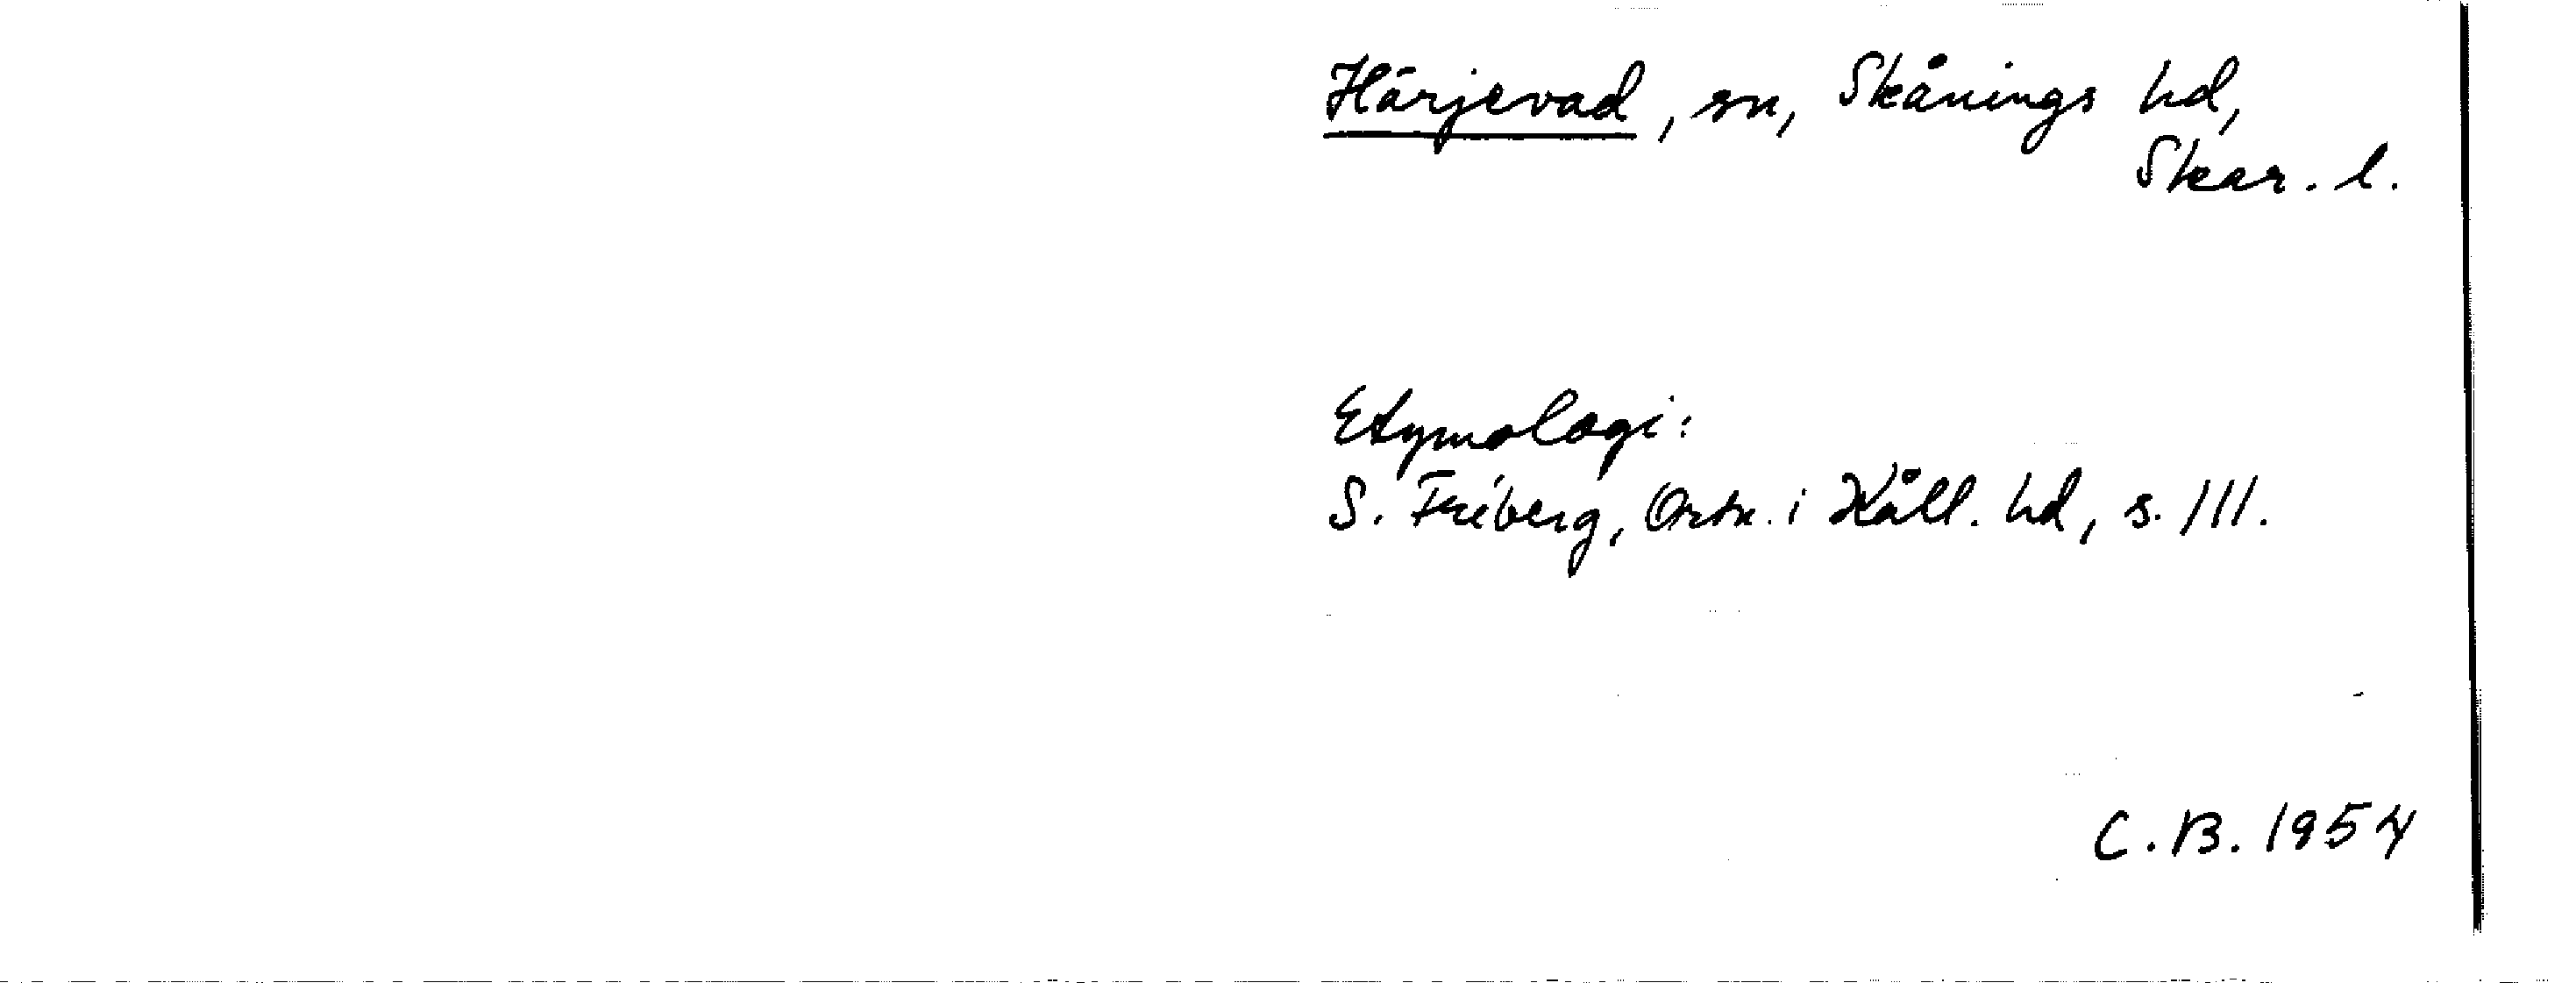 Härjevad, sn, Skånings hd,
Skar. l.
Etymologi:
S. Fríberg, Ortn. i Kåll. hd, s. 111.
C.B. 1954